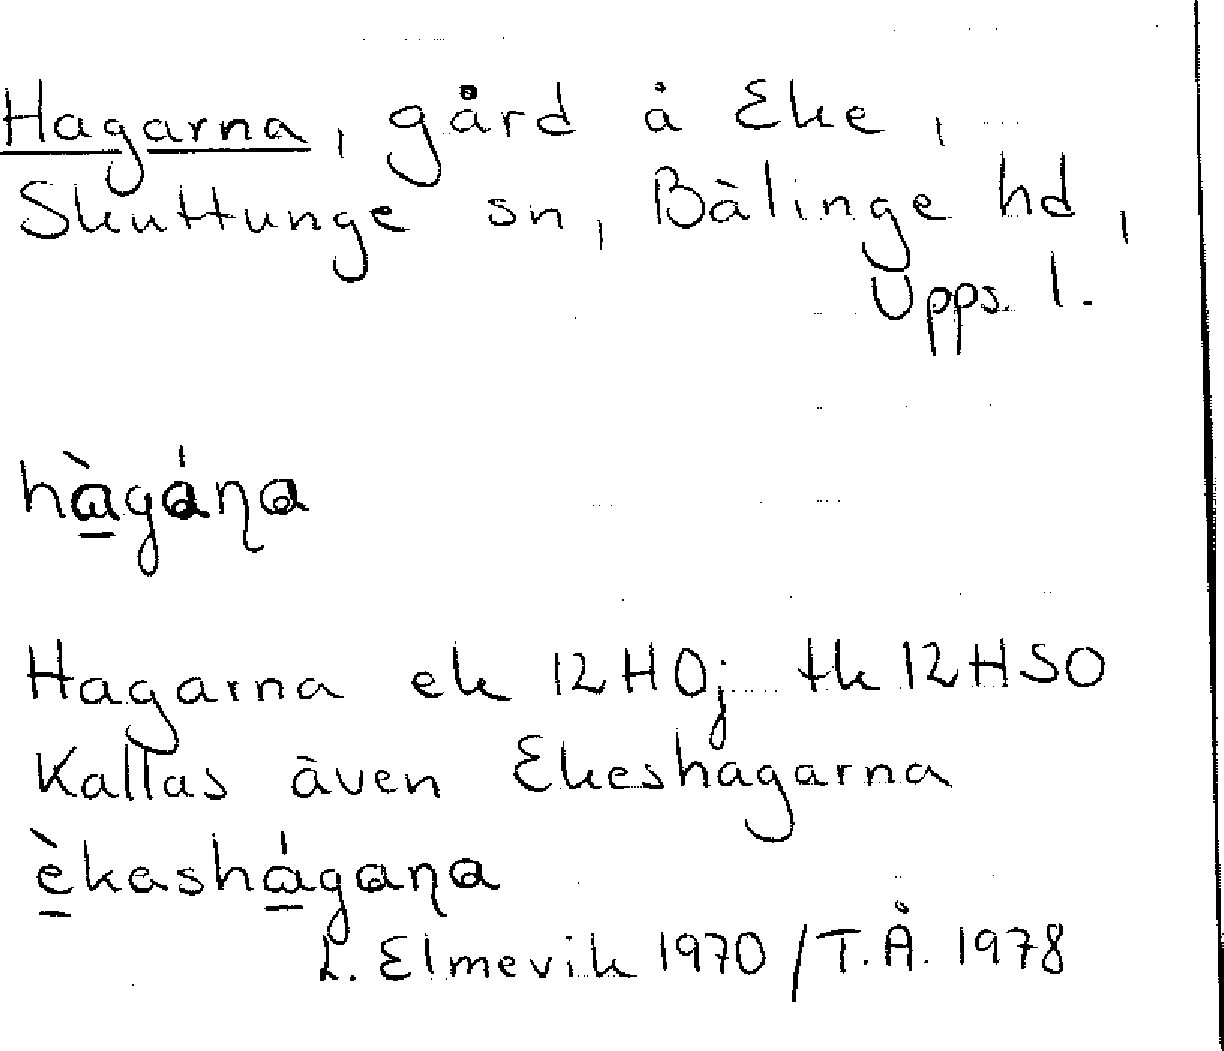 Hagarna, gård å Eke,
Skuttunge sn, Bälinge hd,
Upps. l.
hàgáṇa
Hagarna ek 12H0j tk 12HSO
Kallas även Ekeshagarna
èkashágaṇa
L. Elmevik 1970/T.Å. 1978